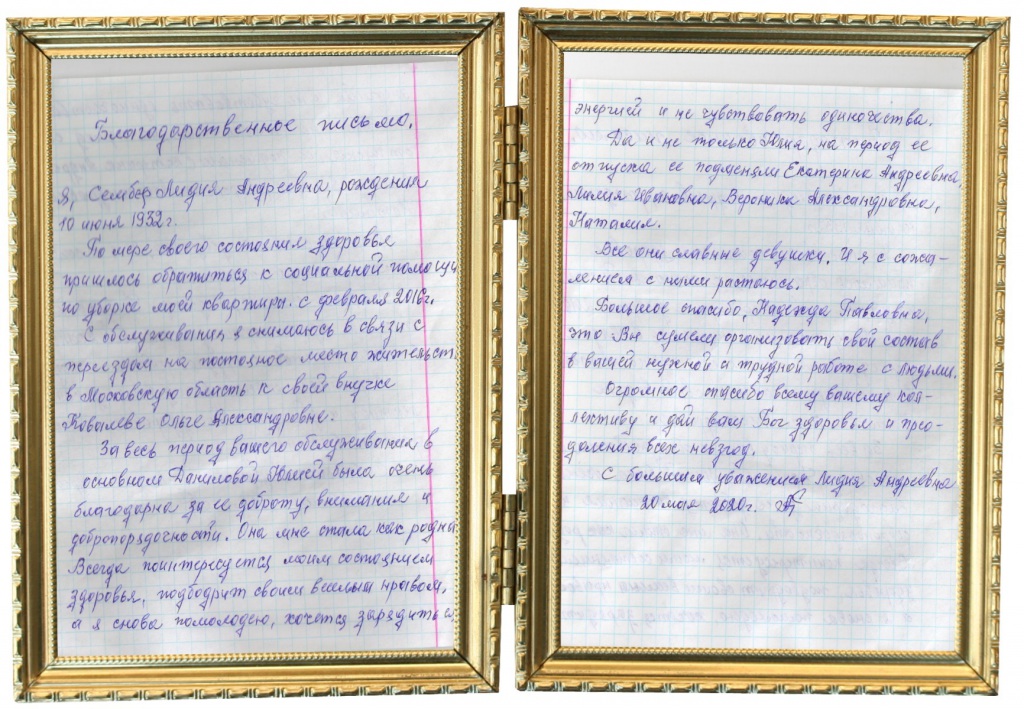 Благодарственное письмо.
Я, Сембер Лидия Андреевна, рождения
10 июня 1932 г.
По мере своего состояния здоровья
пришлось обратиться к социальной помощи
по уборке моей квартиры. с февраля 2016г.
С обслуживания я снимаюсь в связи с
переездом на постоянное место жительств
в Московскую область к своей внучке
Ковалеве Ольге Александровне.
За весь период вашего обслуживания в
основном Даниловой Юлией была очень
благодарна за ее доброту, внимания и
добропорядочности. Она мне стала как родна
Всегда поинтересуется моим состоянием
здоровья, подбодрит своим веселым нравом,
а я снова помолодею, хочется зарядиться
энергией и не чувствовать одиночества.
Да и не только Юлия, на период ее
отпуска ее подменяли Екатерина Андреевна,
Лилия Ивановна, Вероника Александровна,
Наталия.
Все они славные девушки. И я с сожа-
лением с ними растаюсь.
Большое спасибо, Надежда Павловна,
это Вы сумели организовать свой состав
в вашей нужной и трудной работе с людьми.
Огромное спасибо всему вашему кол-
лективу и дай вам Бог здоровья и прео-
доления всех невзгод.
С большим уважением Лидия Андреевна
20 мая 2020г.